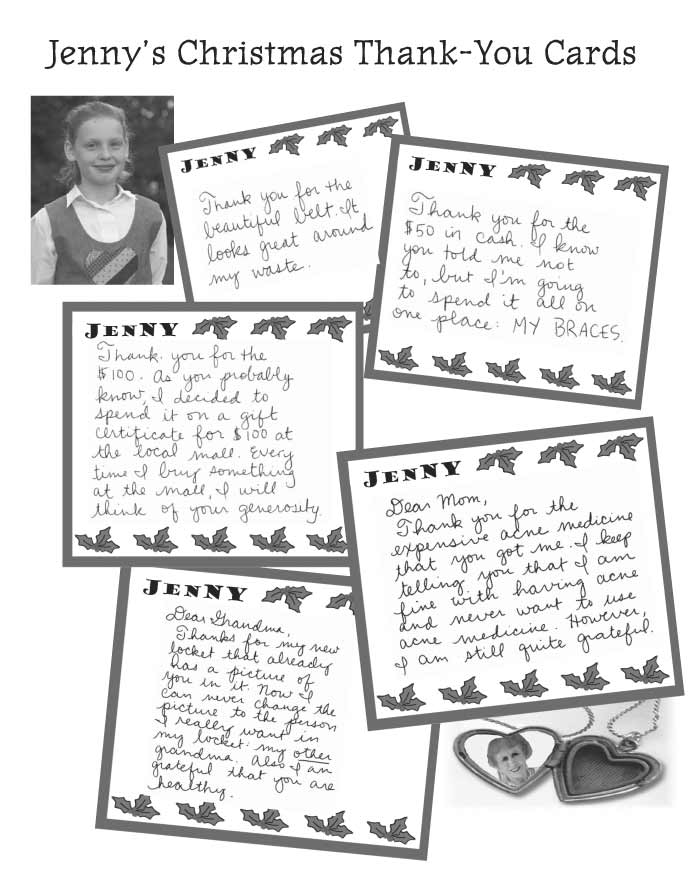 Jenny's Christmas Thank-You Cards
JENNY
Thank you for the
beautiful belt. It
looks great around
my waste.
JENNY
Thank you for the
$50 in cash. I know
you told me not
to, but I'm going
to spend it all on
one place: MY BRACES.
JENNY
Thank you for the
$100. As you probably
know, I decided to
spend it on a gift
certificate for $100 at
the local mall. Every
time I buy something
at the mall, I will
think of your generosity.
JENNY
Dear Mom,
Thank you for the
expensive acne medicine
that you got me. I keep
telling you that I am
fine with having acne
and never want to use
acne medicine. However,
I am still quite grateful.
JENNY
Dear Grandma,
Thanks for my new
locket that already
has a picture of
you in it. Now I
can never change the
picture to the person
I really want in
my locket: my other
grandma. Also I am
grateful that you are
healthy.